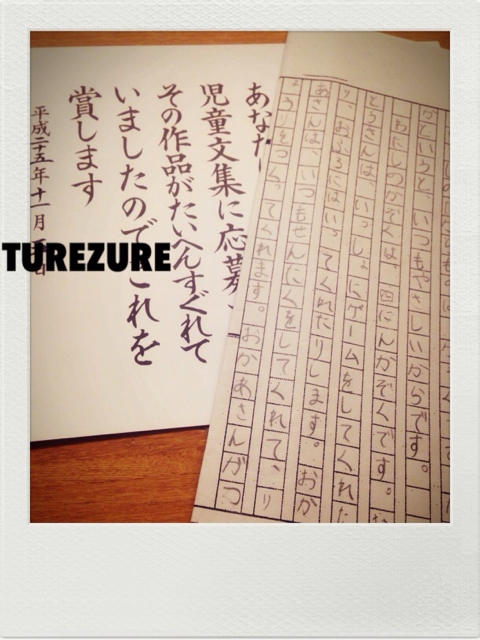 あなた
児童文集に応募
その作品がたいへんすぐれて
いましたのでこれを
賞します
平成二十五年十一月
TUREZURE
いうと、いつもやさしいからです。
わたしのかぞくは、四にんかぞくです。
とうさんは、いっしょにゲームをしてくれた
り、おふろにはいってくれたりします。おか
あさんは、いつもせんたくをしてくれて、り
ょうりをつくってくれます。おかあさんがつ